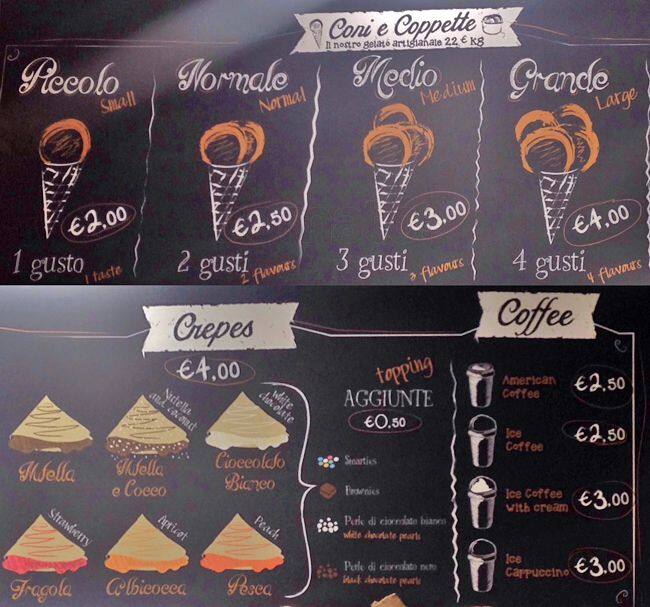 Coni e Coppette
Il nostro gelato artigianale 22 € kg
Piccolo
Small
€2,00
1 gusto
1 taste
Normale
Normal
€2,50
2 gusti
2 flavours
Medio
Medium
€3,00
3 gusti
3 flavours
Grande
Large
€4,00
4 gusti
4 flavours
Crepes
€4,00
Nutella
Nutella
and coconut
Nutella
e Cocco
White
chocolate
Cioccolato
Bianco
Strawberry
Fragola
Apricot
Albicocca
Peach
Pesca
topping
AGGIUNTE
€0,50
Smarties
Brownies
Perle di cioccolato bianco
white chocolate pearls
Perle di cioccolato nero
black chocolate pearls
Coffee
American
Coffee
€2,50
Ice
Coffee
€2,50
Ice Coffee
with cream
€3,00
Ice
Cappuccino
€3,00